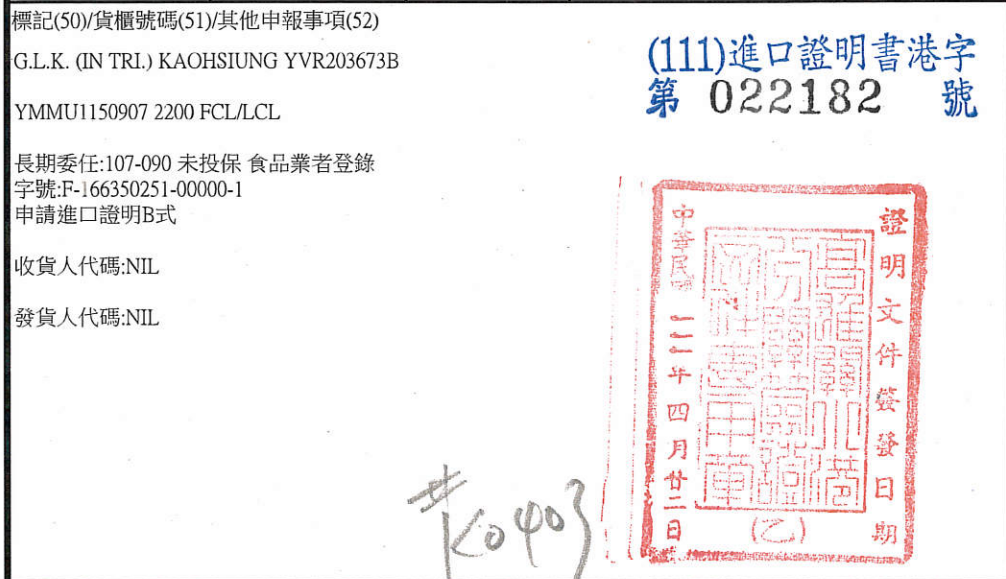 標記(50)/貨櫃號碼(51)/其他申報事項(52)
G.L.K. (IN TRI.) KAOHSIUNG YVR203673B
YMMU1150907 2200 FCL/LCL
長期委任:107-090 未投保 食品業者登錄
字號:F-166350251-00000-1
申請進口證明B式
收貨人代碼:NIL
發貨人代碼:NIL
(111)進口證明書港字
第 022182 號
證明文件簽發日期
中華民國 一一一年四月廿二日
(乙)
K0403